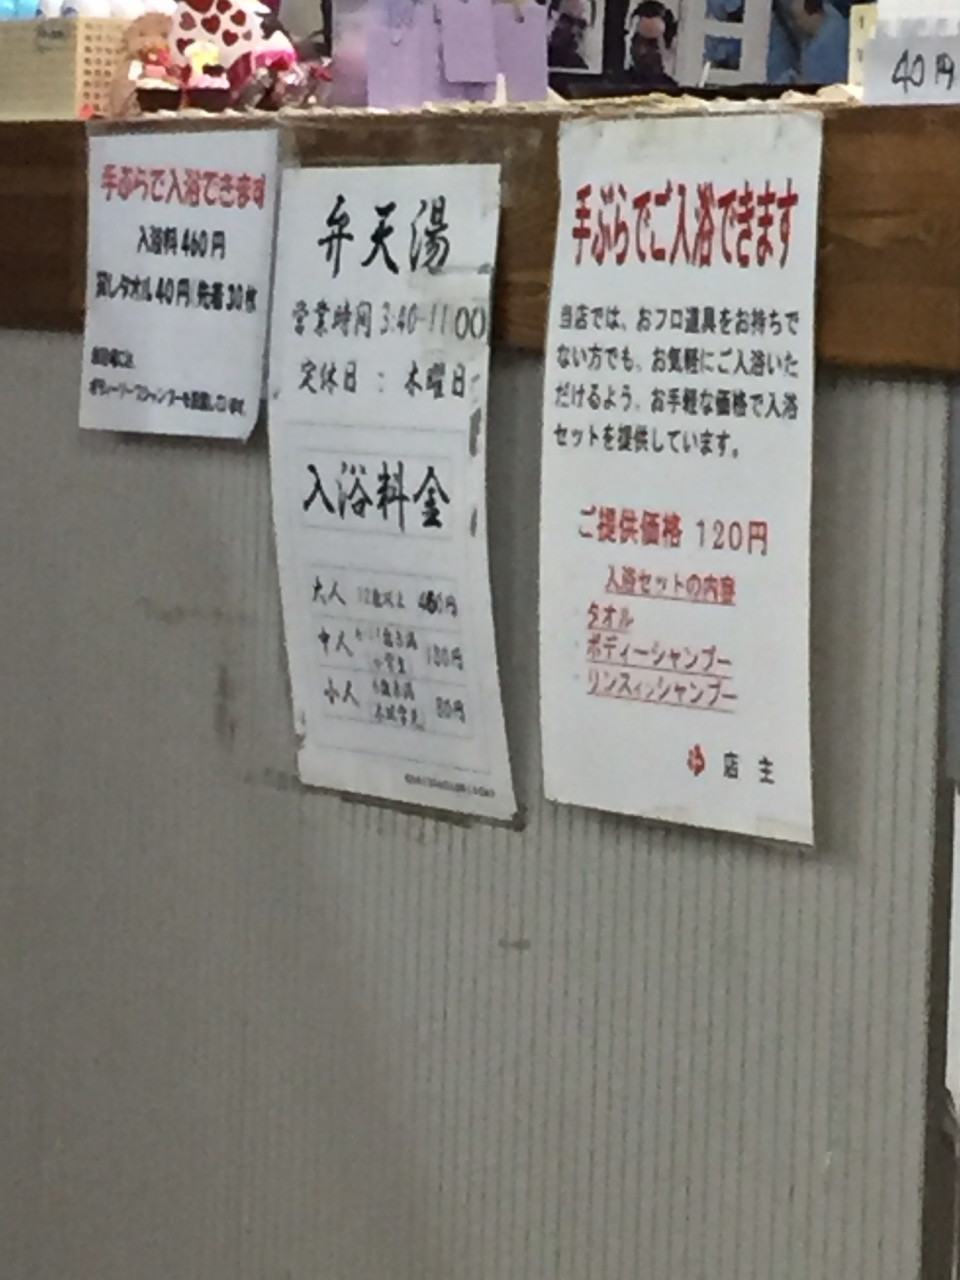 手ぶらで入浴できます
入浴料 460円
貸しタオル 40円 先着30枚
ボディーソープシャンプーも設置しています。
弁天湯
営業時間 3:40-11:00
定休日 : 木曜日
入浴料金
大人 12歳以上 460円
中人 6-11歳未満 小学生 180円
小人 6歳未満 未就学児 80円
手ぶらでご入浴できます
当店では、おフロ道具をお持ちで
ない方でも、お気軽にご入浴いた
だけるよう、お手軽な価格で入浴
セットを提供しています。
ご提供価格 120円
入浴セットの内容
タオル
ボディーシャンプー
リンスインシャンプー
ゆ 店主
40円